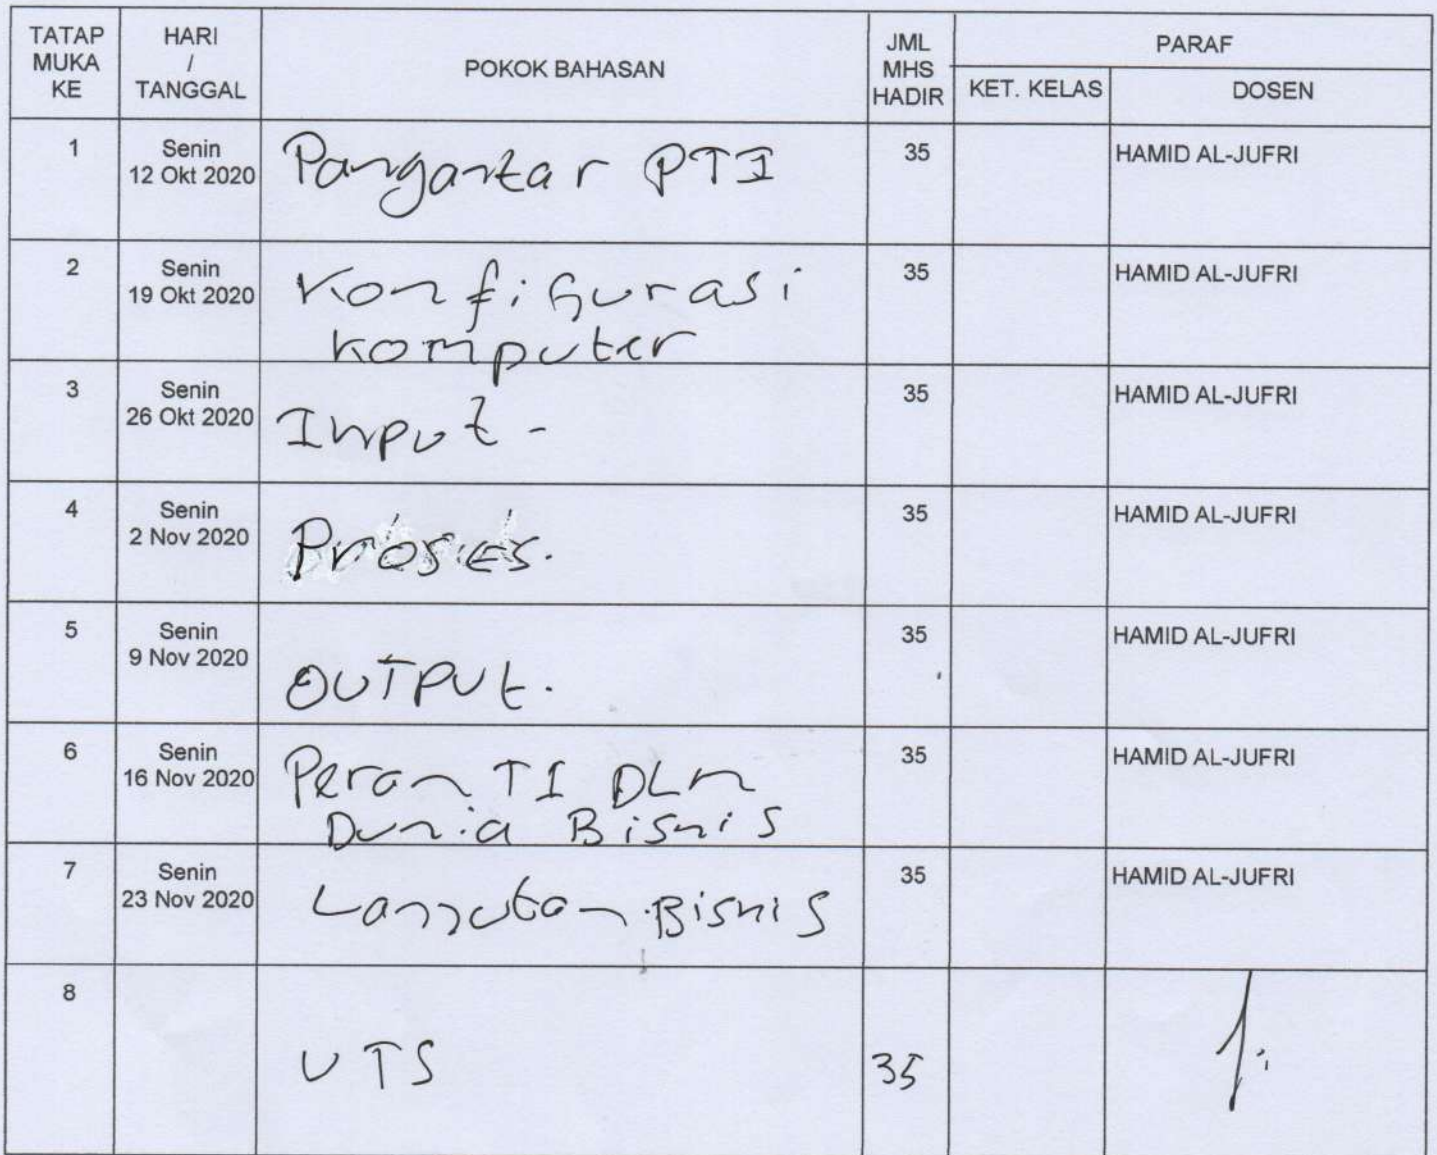 TATAP MUKA KE
HARI / TANGGAL
POKOK BAHASAN
JML MHS HADIR
PARAF
KET. KELAS
DOSEN
1 Senin 12 Okt 2020 Pangantar PTI 35 HAMID AL-JUFRI
2 Senin 19 Okt 2020 Konfigurasi komputer 35 HAMID AL-JUFRI
3 Senin 26 Okt 2020 Input - 35 HAMID AL-JUFRI
4 Senin 2 Nov 2020 Proses. 35 HAMID AL-JUFRI
5 Senin 9 Nov 2020 OUTPUt. 35 HAMID AL-JUFRI
6 Senin 16 Nov 2020 Peran TI DLm Dunia Bisnis 35 HAMID AL-JUFRI
7 Senin 23 Nov 2020 Lanjutan Bisnis 35 HAMID AL-JUFRI
8 UTS 35